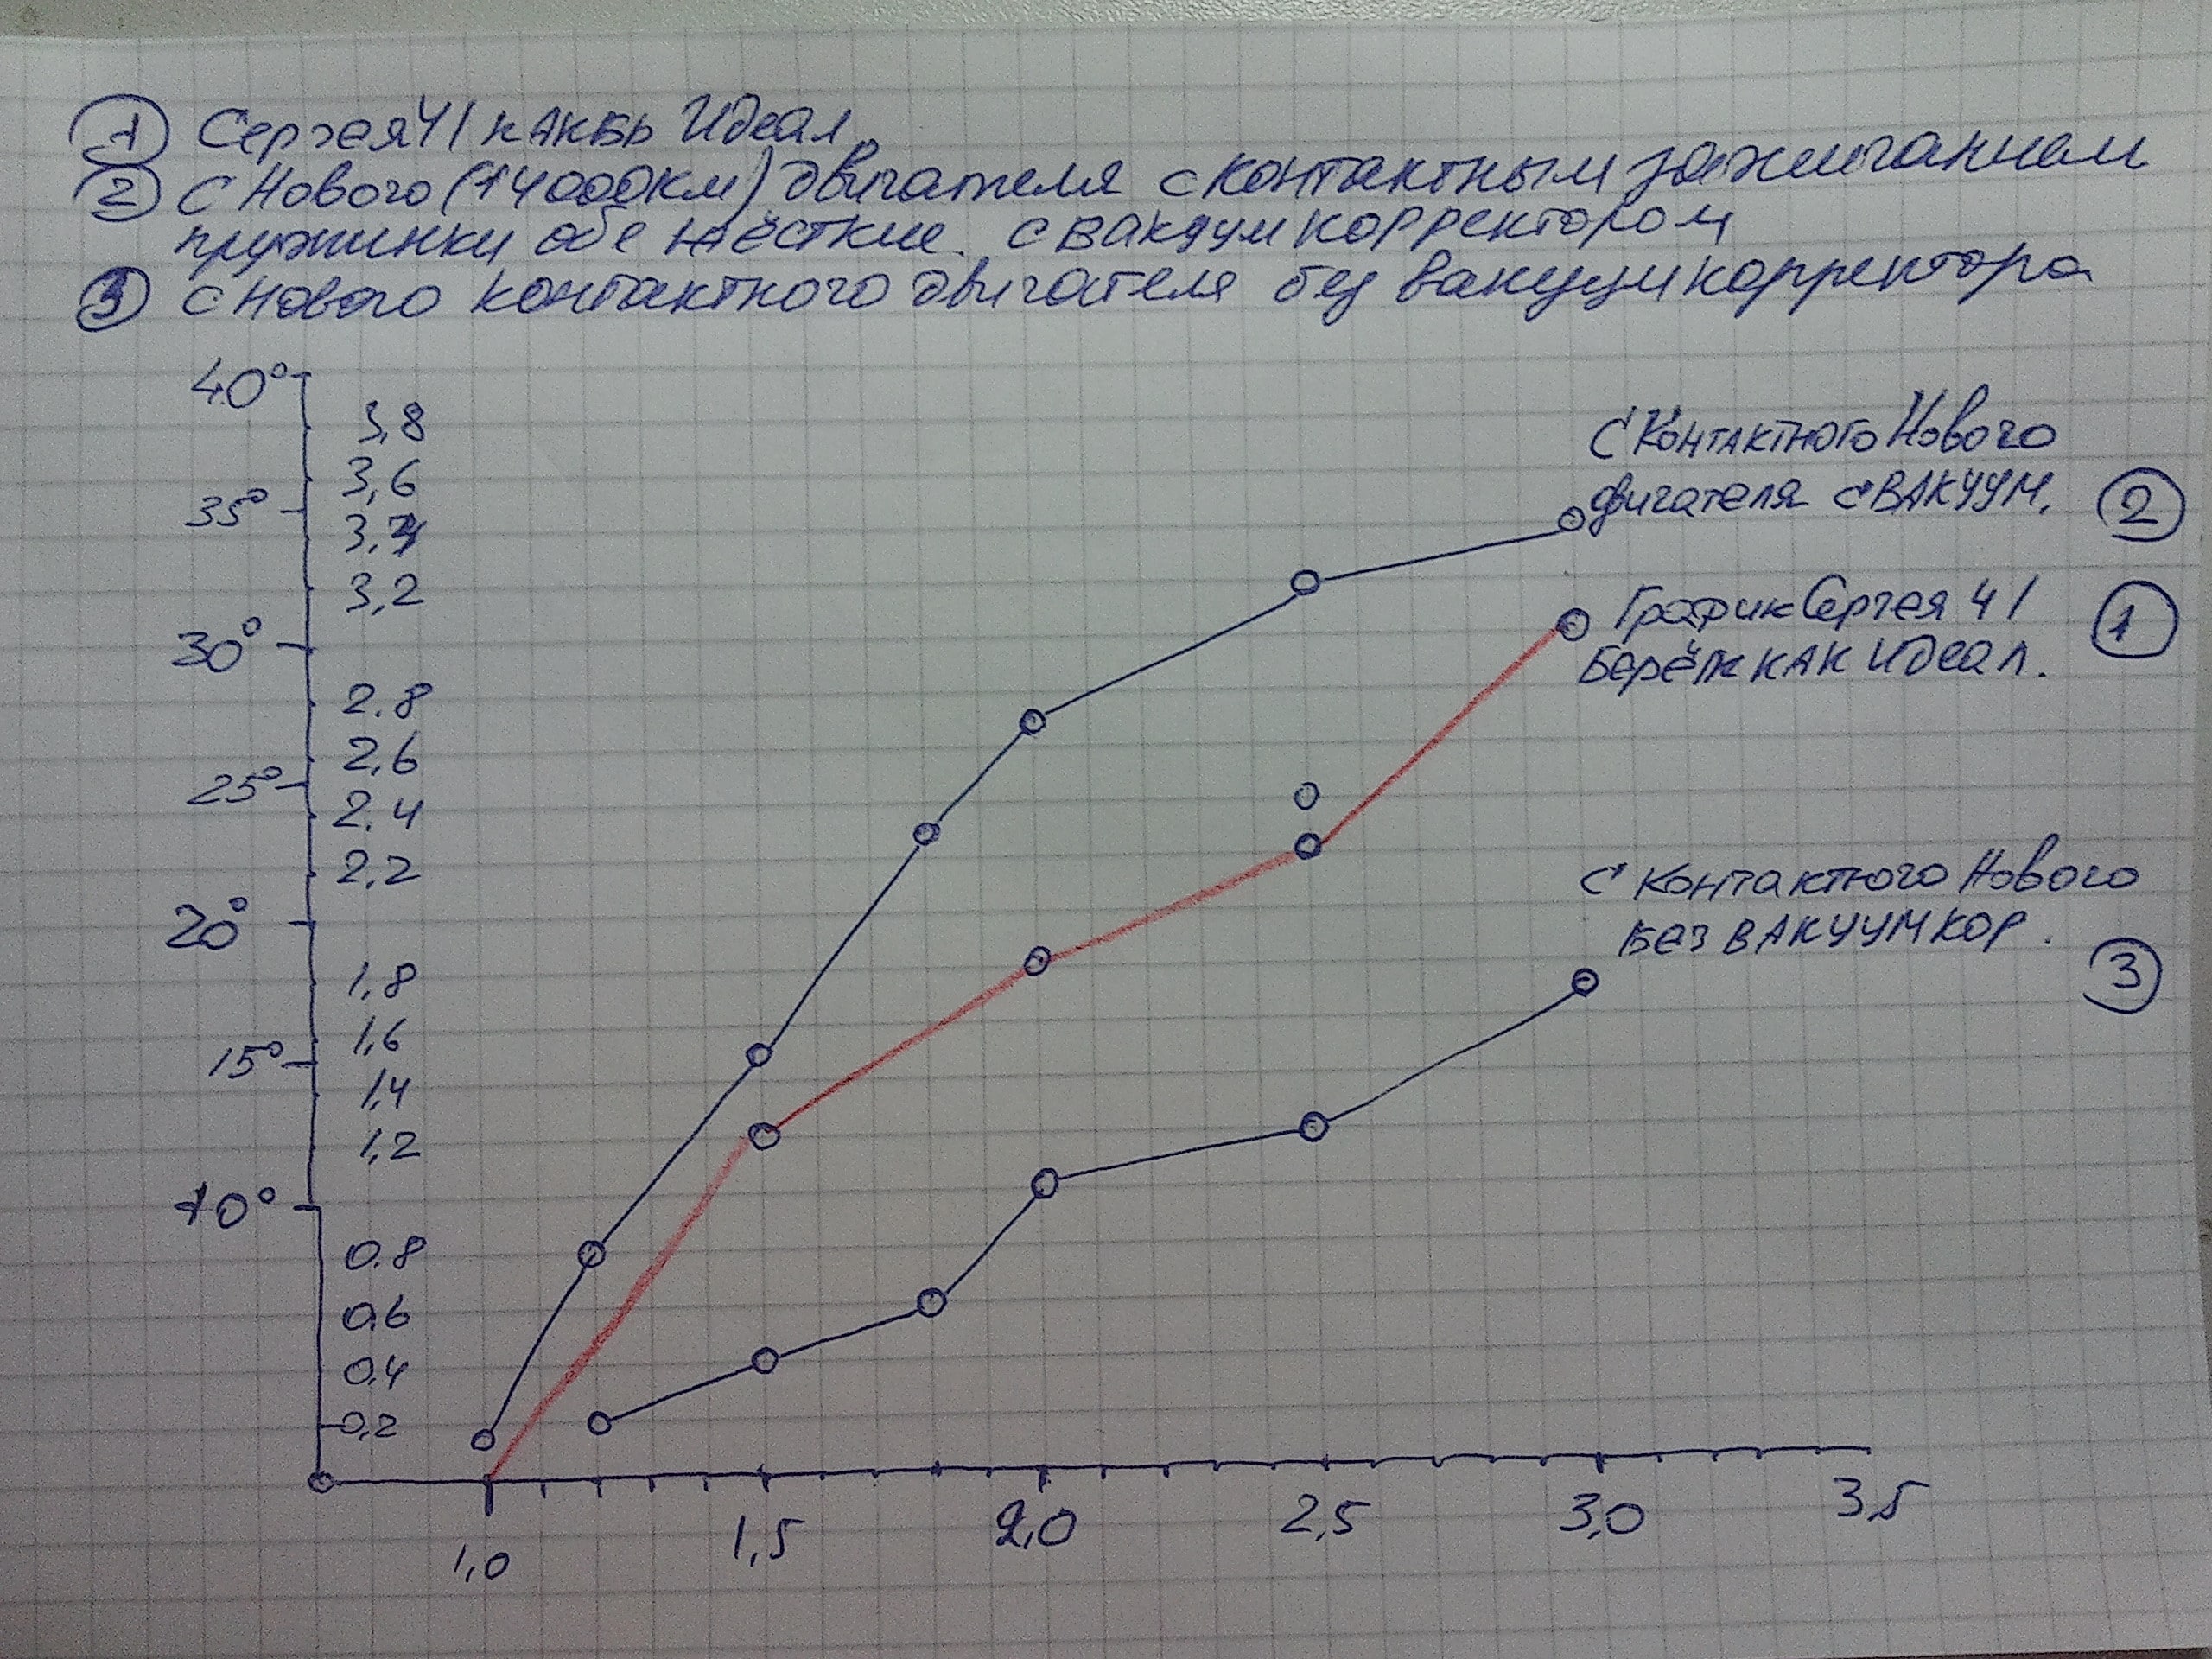 ① Сергея 41 как бы Идеал
② С Нового (14000км) двигателя с контактным зажиганием
пружинки обе жёсткие. с вакуумкорректором
③ с нового контактного двигателя без вакуумкорректора
40°
3,8
3,6
35°
3,4
3,2
30°
2.8
2,6
25°
2.4
2,2
20°
1,8
1,6
15°
1,4
1,2
10°
0.8
0.6
0.4
0,2
С Контактного Нового
двигателя с ВАКУУМ. ②
График Сергея 41 ①
Берём как идеал.
С Контактного Нового
Без ВАКУУМКОР. ③
1,0 1,5 2,0 2,5 3,0 3,5